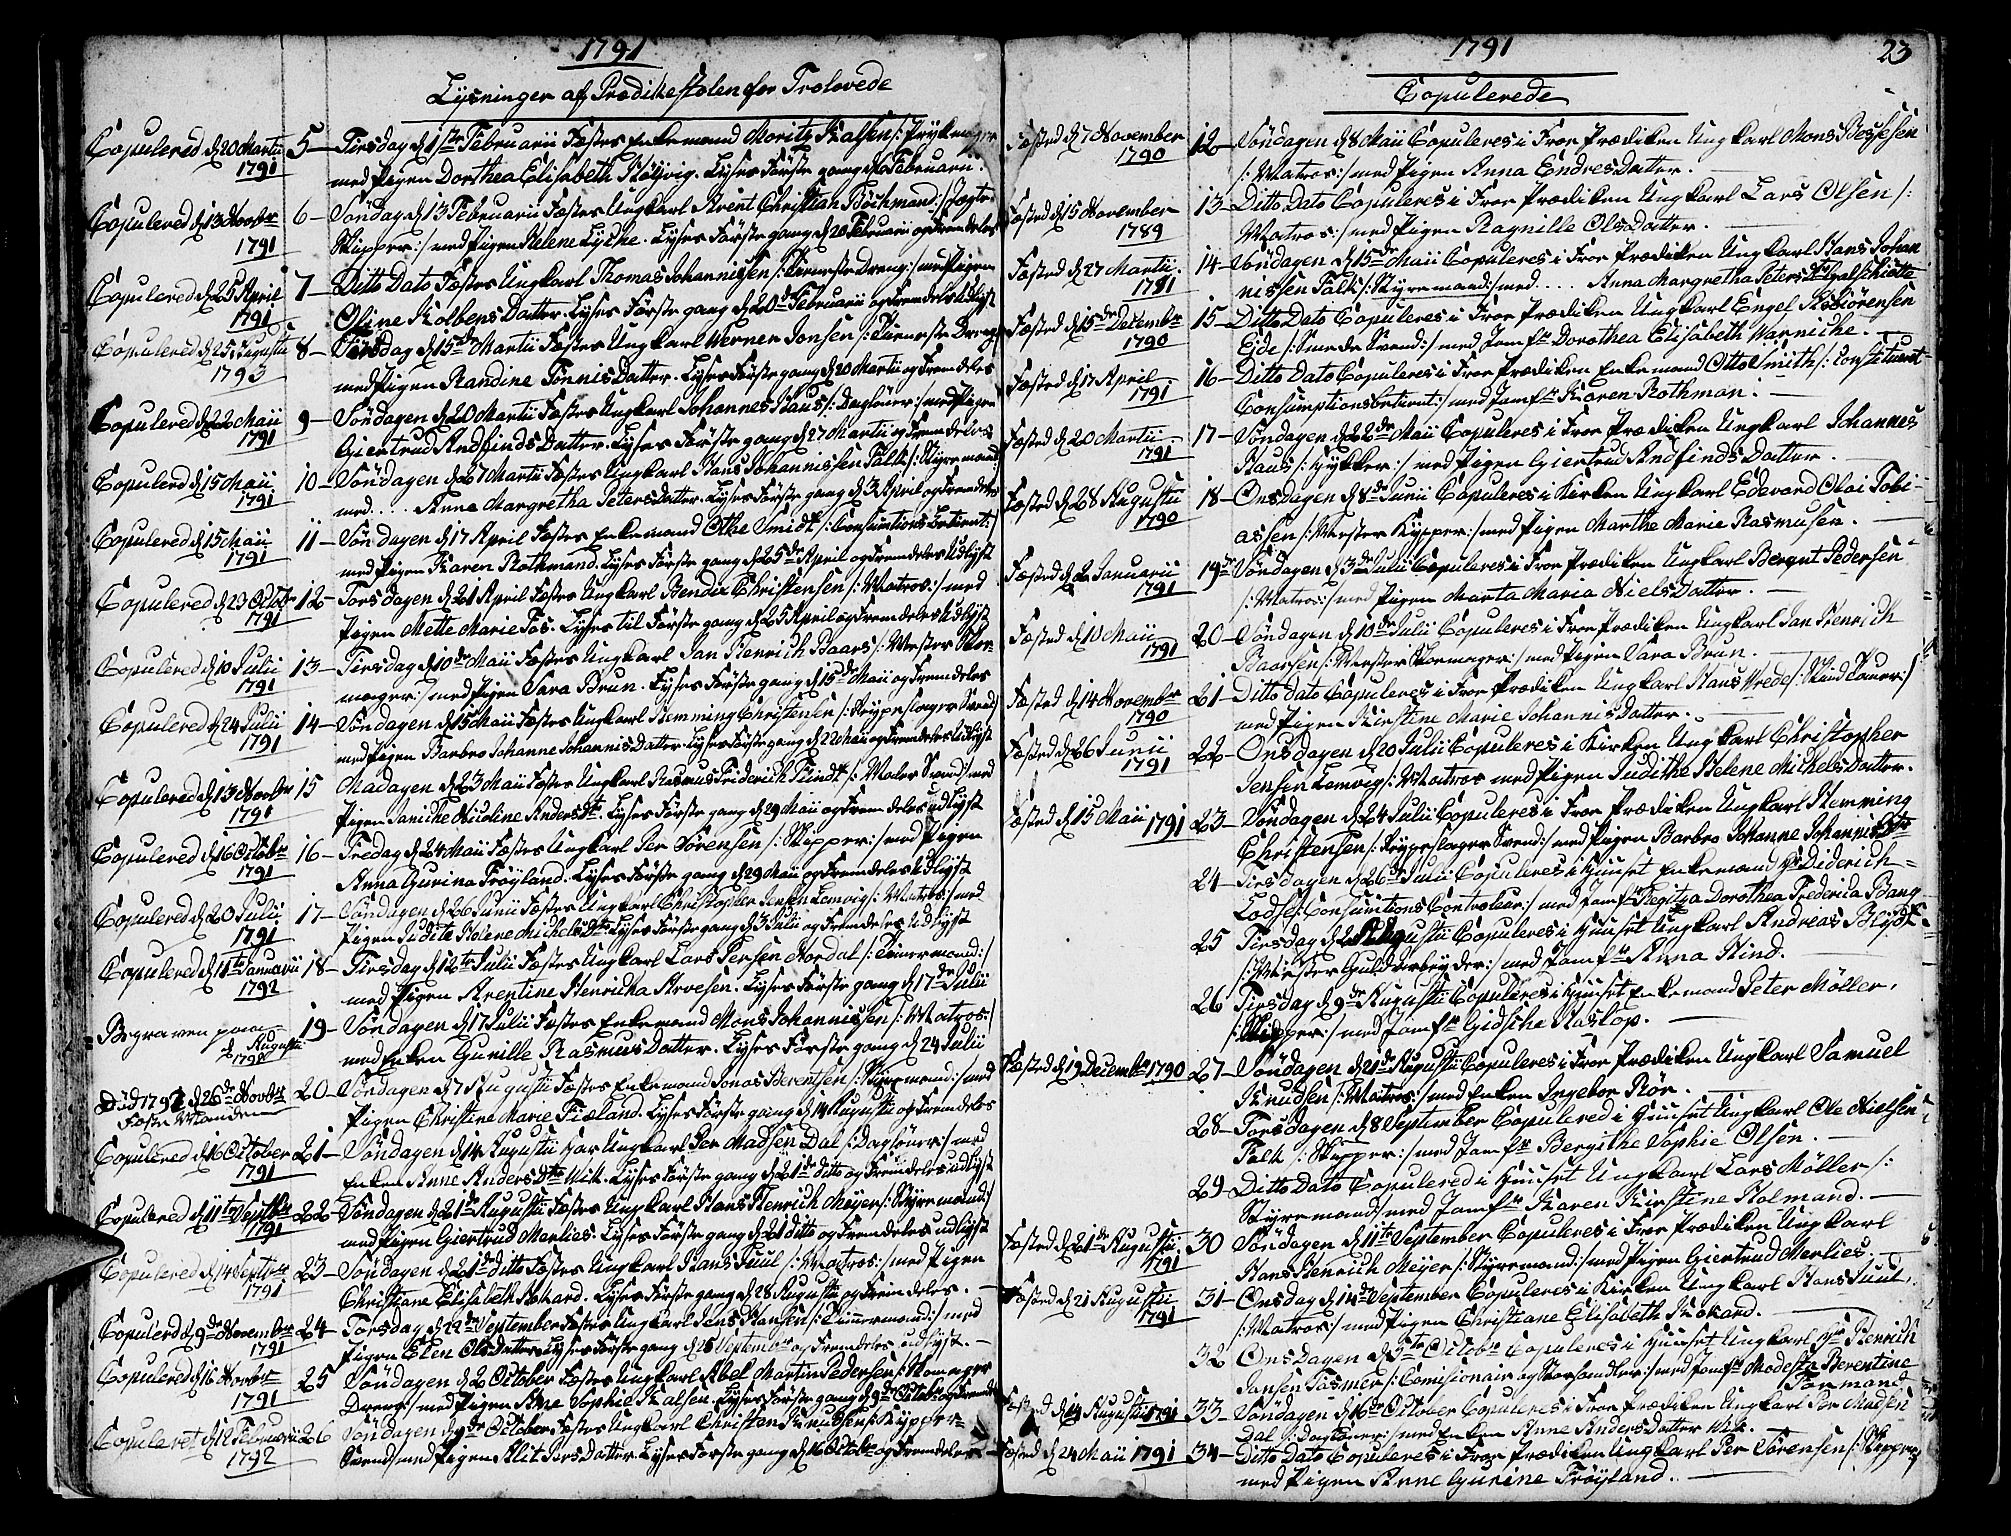 1791
Lysninger af Prædikestolen for Trolovede
Copulered d 20 Martii 1791
5 — Tirsdag d 1ste Februarii Fæstes Enkemand Moritz Kalsen /:
med Pigen Dorthea Elisabeth Høyvig. Lyses Förste gang d 6 Februarii.
Copulered d 13 Novbr 1791
6 — Söndag d 13 Februarii Fæstes Ungkarl Arent Christian Böchmand /: Jagte
Skipper :/ med Pigen Helene Lyche. Lyses Förste gang d 20 Februarii og Fremdeles
Copulered d 25 April 1791
7 — Ditto Dato Fæstes Ungkarl Thomas Johannissen /: Dreng :/ med Pigen
Oline Kolbens Datter. Lyses Förste gang d 20 Februarii og Fremdeles Udlyst
Copulered d 25 Augustii 1793
8 — Tirsdag d 15de Martii Fæstes Ungkarl Werner Jonsen /: Dreng
med Pigen Randine Tönnis Datter. Lyses Förste gang d 20 Martii og Fremdeles
Copulered d 22 Maii 1791
9 — Söndagen d 20 Martii Fæstes Ungkarl Johannes Haus /: Daglöner :/ med Pigen
Giertrud Andfinds Datter. Lyses Förste gang d 27 Martii og Fremdeles
Copulerd d 15 Maii 1791
10 — Söndagen d 27 Martii Fæstes Ungkarl Hans Johannissen Falk /: Styremand :/
med.... Anne Margretha Peters Datter. Lyses Förste gang d 3 April og Fremdeles
Copulered d 15 Maii 1791
11 — Söndagen d 17 April Fæstes Enkemand Otke Smidt /: Consumtions Betient :/
med Pigen Karen Rothmand. Lyses Förste gang d 25de April og Fremdeles Udlyst
Copulered d 23 Octobr 1791
12 — Torsdagen d 21 April Fæstes Ungkarl Bendix Christensen /: Matros :/ med
Pigen Mette Marie Fos. Lyses til Förste gang d 25 April og Fremdeles Udlyst
Copulered d 10 Julii 1791
13 — Tirsdag d 10de Maii Fæstes Ungkarl Jan Henrich Baars /: Mester Skoe
mager :/ med Pigen Sara Brun. Lyses Förste gang d 15de Maii og Fremdeles
Copulered d 24 Julii 1791
14 — Söndagen d 15 Maii Fæstes Ungkarl Hemming Christensen /: Svend :/
med Pigen Barbro Johanne Johannis Datter. Lyses Förste gang d 22 Maii og Fremdeles Udlyst
Copulered d 13 Novbr 1791
15 Madagen d 23 Maii Fæstes Ungkarl Rasmus Friderich Flindt /: Maler Svend :/ med
Pigen Janiche Nicoline Anders Dtr. Lyses Förste gang d 29 Maii og Fremdeles udlyst
Copulered d 16 Octobr 1791
16 — Tredag d 24 Maii Fæstes Ungkarl Per Sörensen /: Skipper :/ med Pigen
Anna Gurina Fröyland. Lyses Förste gang d 29 Maii og Fremdeles Udlyst
Copulered d 20 Julii 1791
17 — Söndagen d 26 Junii Fæstes Ungkarl Christopher Jensen Lemvig /: Matros :/ med
Pigen Judite Helene Michels Dtr. Lyses Förste gang d 3 Julii og Fremdeles Udlyst
Copulered d 11te Januarii 1792
18 — Tirsdag d 12te Julii Fæstes Ungkarl Lars Persen Nordal /: Timermand :/
med Pigen Arentine Henricha Arvesen. Lyses Förste gang d 17de Julii
Begraven paa d Augustii
19 — Söndagen d 17 Julii Fæstes Enkemand Mons Johannissen /: Matros :/
med Enken Gunille Rasmus Datter. Lyses Förste gang d 24 Julii
Död d 26de Novbr Manden
20 — Söndagen d 7 Augustii Fæstes Enkemand Jonas Berentsen /: :/ med
Pigen Christine Marie Fieland. Lyses Förste gang d 14 Augustii og Fremdeles
Copulered d 16 October 1791
21 — Söndagen d 14 Augustii har Ungkarl Per Madsen Dal /: Daglöner :/ med
Enken Anne Anders Dtr Wiik. Lyses Förste gang d 21de ditto og Fremdeles udlyst
Copulered d 11te Septbr 1791
22 — Söndagen d 21de Augustii Fæstes Ungkarl Hans Henrich Meyer /: Styremand :/
med Pigen Giertrud Merlies. Lyses Förste gang d 21 ditto og Fremdeles udlyst
Copulered d 14 Septbr 1791
23 — Söndagen d 21de Ditto Fæstes Ungkarl Hans Juul /: Matros :/ med Pigen
Christiane Elisabeth Kokard. Lyses Förste gang d 28 Augustii og Fremdeles.
Copulerd d 9de November 1791
24 — Torsdag d 22de September Fæstes Ungkarl Jens Hansen /: Timmermand :/ med
Pigen Elen Ols Datter. Lyses Förste gang d 25 September og Fremdeles udlyst.
Copulered d 16 Novbr 1791
25 Söndagen d 2 October Fæstes Ungkarl Abel Martin Pedersen /: Skomager
Dreng :/ med Pigen Ane Sophie Kalsen. Lyses Förste gang d 9de Octobr og Fremd
Copuleret d 12 Februarii 1792
26 Söndagen d 9de October Fæstes Ungkarl Christen Knudsen /: Kypper-
Svend :/ med Pigen Alit Iversdatter. Lyses Förste gang d 16 Octobr og Fremdeles
1791
23
Copulerede
Fæsted d 7 November 1790
12 — Söndagen d 8 Maii Copuleres i Froe Prædiken Ungkarl Mons Bessesen
/: Matros :/ med Pigen Anna Endres Datter.
Fæsted d 15 November 1789
13 — Ditto Dato Copuleres i Froe Prædiken Ungkarl Lars Olsen /:
Matros :/ med Pigen Ragnille Ols Datter.
Fæsted d 27 Martii 1791
14 — Söndagen d 15de Maii Copuleres i Froe Prædiken Ungkarl Hans Johan
nissen Falk /: Styremand :/ med.... Anna Margretha Peters Dtr
Fæsted d 15de Decembr 1790
15 — Ditto Dato Copuleres i Froe Prædiken Ungkarl Engel Asbiörensen
Eide /: Smede Svend :/ med Jomfr Dorothea Elisabeth Warniche.
Fæsted d 17 April 1791
16 — Ditto Dato Copuleres i Froe Prædiken Enkemand Otto Smith /: Constitueret
Consumptionsbetient :/ med Jomfr Karen Rothman.
Fæsted d 20 Martii 1791
17 — Söndagen d 22de Maii Copuleres i Froe Prædiken Ungkarl Johannes
Haus /: Kykker :/ med Pigen Giertrud Andfinds Datter.
Fæsted d 28 Augustii 1790
18 — Onsdagen d 8de Junii Copuleres i Kirken Ungkarl Edevard Olai Tobi-
assen /: Mester Kypper :/ med Pigen Marthe Marie Rasmusen.
Fæsted d 2 Januarii 1791
19 — Söndagen d 3de Julii Copuleres i Froe Prædiken Ungkarl Bergut Pedersen
/: Matros :/ med Pigen Marta Maria Niels Datter.
Fæsted d 10 Maii 1791
20 — Söndagen d 10de Julii Copuleres i Froe Prædiken Ungkarl Jan Henrich
Baarsen /: Mester Skomager :/ med Pigen Sara Brun.
Fæsted d 14 Novembr 1790
21 — Ditto dato Copuleres i Froe Prædiken Ungkarl Hans Wrede /: :/
med Pigen Kirstine Marie Johannis Datter.
Fæsted d 26 Junii 1791
22 — Onsdagen d 20 Julii Copuleres i Kirken Ungkarl Christopher
Jensen Lemvig /: Matros med Pigen Judithe Helene Michels Datter.
Fæsted d 15 Maii 1791
23 — Söndagen d 24 Julii Copuleres i Froe Prædiken Ungkarl Hemming
Christensen /: Svend :/ med Pigen Barbro Johanne Johannis Dtr
24 — Tirsdagen d 26de Julii Copuleres i Huuset Enkemand Hr Diderich
Lodse /: Consumtions Controleur :/ med Jomfr Regitza Dorothea Frederica Bang
25 Tirsdag d 2 Augustii Copuleres i Huuset Ungkarl Andreas Blydt
/: Mester Guld Arbeyder :/ med Jomfr Anna Hind.
26 Tirsdag d 9de Augustii Copuleres i Huuset Enkemand Peter Möller,
/: Skipper :/ med Jomfr Gidsche Haslop.
Fæsted d 19 Decembr 1790
27 — Söndagen d 21de Augustii Copuleres i Froe Prædiken Ungkarl Samuel
Knudsen /: Matros :/ med Enken Ingebor Rör.
28 — Torsdagen d 8 September Copulered i Huuset Ungkarl Ole Nielsen
Falk /: Skipper :/ med Jomfr Bergithe Sophie Olsen.
29 — Ditto Dato Copulered i Huuset Ungkarl Lars Möller /:
Styremand :/ med Jomfr Karen Kirstine Holmand.
Fæsted d 21de Augustii 1791
30 Söndagen d 11te September Copuleres i Froe Prædiken Ungkarl
Hans Henrich Meyer /: Styremand :/ med Pigen Giertrud Merlies.
Fæsted d 21 Augustii 1791
31 — Onsdag d 14de September Copuleres i Kirken Ungkarl Hans Juul,
/: Matros :/ med Pigen Christiane Elisabeth Kokard.
32 Onsdagen d 5te Octobr Copuleres i Huuset Ungkarl Hr Henrich
Jansen Fasmer /: Comisionair og Storhandler :/ med Jomfr Modesta Berentine
Formand
Fæsted d 14 Augustii 1791
33 — Söndagen d 16de October Copuleres i Froe Prædiken Ungkarl Per Madsen
Dal /: Daglöner :/ med Enken Anne Anders Datter Wik.
Fæsted d 24 Maii 1791
34 — Ditto Dato Copuleres i Froe Prædiken Ungkarl Per Sörensen /: Skipper :/
med Pigen Anne Gurine Fröyland.